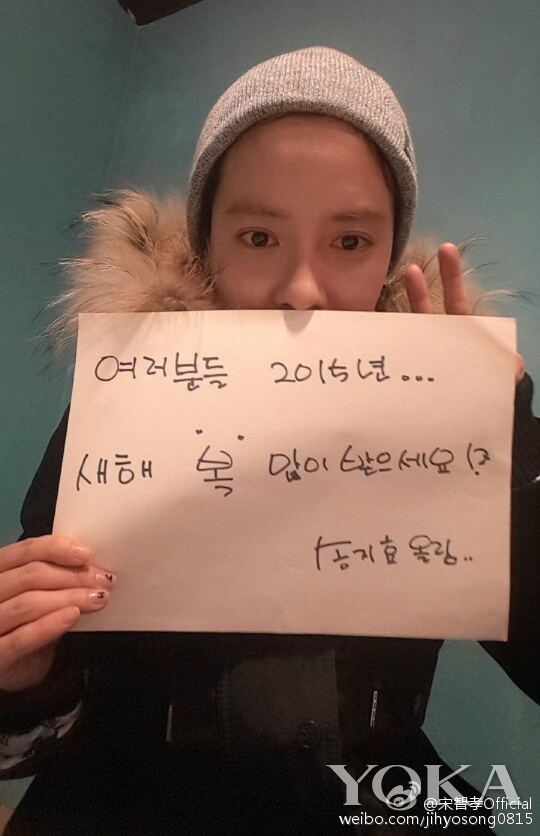 여러분들 2015년...
새해 복 많이 받으세요!?
송지효 올림..
YOKA
@宋智孝Official
weibo.com/jihyosong0815